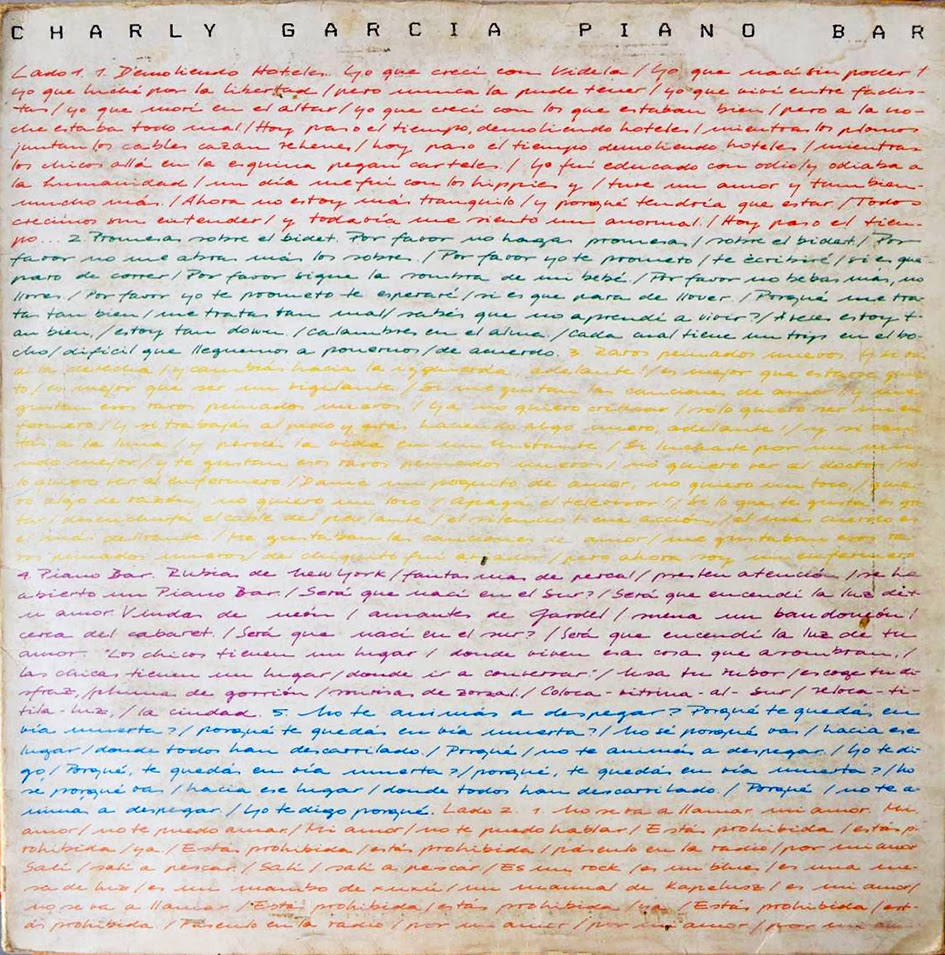 CHARLY GARCIA PIANO BAR
Lado 1. 1. Demoliendo Hoteles. Yo que crecí con Videla / Yo que nací sin poder /
yo que luché por la libertad / pero nunca la pude tener / yo que viví entre facis-
tas / yo que morí en el altar / yo que crecí con los que estaban bien / pero a la no-
che estaba todo mal / Hoy paso el tiempo, demoliendo hoteles / mientras los plomos
juntan los cables cazan rehenes / hoy paso el tiempo demoliendo hoteles / mientras
los chicos allá en la esquina pegan carteles / Yo fui educado con odio / y odiaba a
la humanidad / un día me fui con los hippies y / tuve un amor y tambien
mucho más. / Ahora no estoy más tranquilo / y porqué tendría que estar. / Todos
crecimos sin entender / y todavía me siento un anormal. / Hoy paso el tiem-
po... 2. Promesas sobre el bidet. Por favor no hagas promesas / sobre el bidet. / Por
favor no me abras más los sobres. / Por favor yo te prometo / te escribiré / si es que
paro de correr / Por favor sigue la sombra de un bebé. / Por favor no bebas más, no
llores. / Por favor yo te prometo te esperaré / si es que para de llover. / Porqué me tra-
tas tan bien / me tratas tan mal / sabés que no aprendí a vivir? / A veces estoy t-
an bien, / estoy tan down. / Calambres en el alma / Cada cual tiene un trip en el bo-
cho / difícil que lleguemos a ponernos / de acuerdo. 3. Raros peinados nuevos. Y si vas
a la derecha / y cambiás hacia la izquierda adelante! / es mejor que estarse quie
to / es mejor que ser un vigilante / Si me gustan las canciones de amor / y me
gustan esos raros peinados nuevos / Ya no quiero criticar / solo quiero ser un en
fermero / Y si trabajás al pedo y estás haciendo algo nuevo, adelante! / y si can
tás a la luna / y perdés la vida en un instante / Si luchaste por un mu
ndo mejor / y te gustan esos raros peinados nuevos / no quiero ver al doctor / só-
lo quiero ver al enfermero / Dame un poquito de amor, no quiero un toco, / quie
ro algo de razón, no quiero un loco / Apagá el televisor! / Si lo que te gusta es gri
tar / desenchufá el cable del parlante / el silencio tiene acción, / el más cuerdo es
el más delirante. / Me gustaban las canciones de amor / me gustaban esos ra-
ros peinados nuevos / de chiquito fui aviador / pero ahora soy un enfermero
4. Piano Bar. Rubias de New York / fantasmas de percal / presten atención / se ha
abierto un Piano Bar. / Será que nací en el Sur? / Será que encendí la luz de t-
u amor. Viudas de neón / amantes de Gardel / suena un bandoneón /
cerca del cabaret. / Será que nací en el sur? / Será que encendí la luz de tu
amor. Los chicos tienen un lugar / donde viven esas cosas que asombran. /
las chicas tienen un lugar / donde ir a conversar. / Usa tu rubor / escoge tu di-
sfraz, / pluma de gorrión / sonrisas de zorzal. / Coloca - vitrina - al - Sur / reloca - ti-
tila - luz, / la ciudad. 5. No te animás a despegar? Porqué te quedás en
vía muerta? / porqué te quedás en vía muerta? / No sé porqué vas / hacia ese
lugar / donde todos han descarrilado. / Porqué / no te animás a despegar. / Yo te di-
go / Porqué, te quedás en vía muerta? / porqué, te quedás en vía muerta? / No
se porqué vas / hacia ese lugar / donde todos han descarrilado. / Porqué / no te a-
nimás a despegar. / Yo te digo porqué. Lado 2. 1. No se va a llamar mi amor. Mi
amor / no te puedo amar / Mi amor / no te puedo hablar / Estás prohibida / estás p-
rohibida / ya. / Estás prohibida / estás prohibida / pásenlo en la radio / por mi amor
Salí / salí a pescar. / Salí / salí a pescar / Es un rock / es un blues / es una me-
sa de luz / es un mambo de / un manual de Kapelusz / es mi amor /
no se va a llamar. / Estás prohibida / estás prohibida / ya. / Estás prohibida / est-
ás prohibida / Pasenlo en la radio / por mi amor / por mi amor / por mi am-